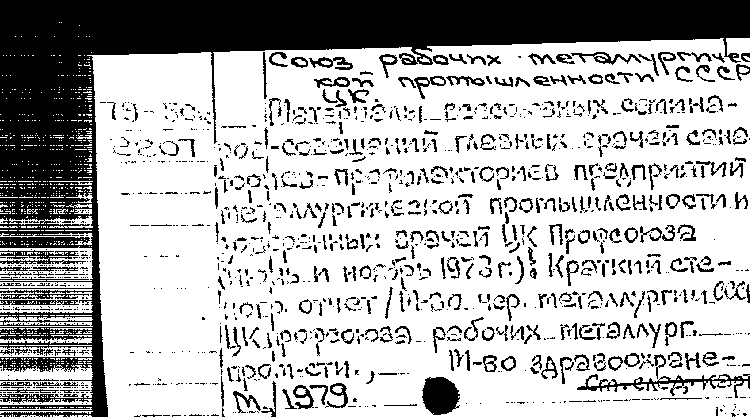 Союз рабочих металлургичес
кой промышленности СССР
ЦК
Материалы всесоюзных семина-
ров-совещаний главных врачей сана-
ториев-профилакториев предприятий
металлургической промышленности и
доверенных врачей ЦК Профсоюза
(июнь и ноябрь 1978 г.): Краткий сте-
ногр. отчет / М-во чер. металлургии СССР
ЦК профсоюза рабочих металлург.
пром-сти., М-во здравоохране-
М., 1979. См. след. карт